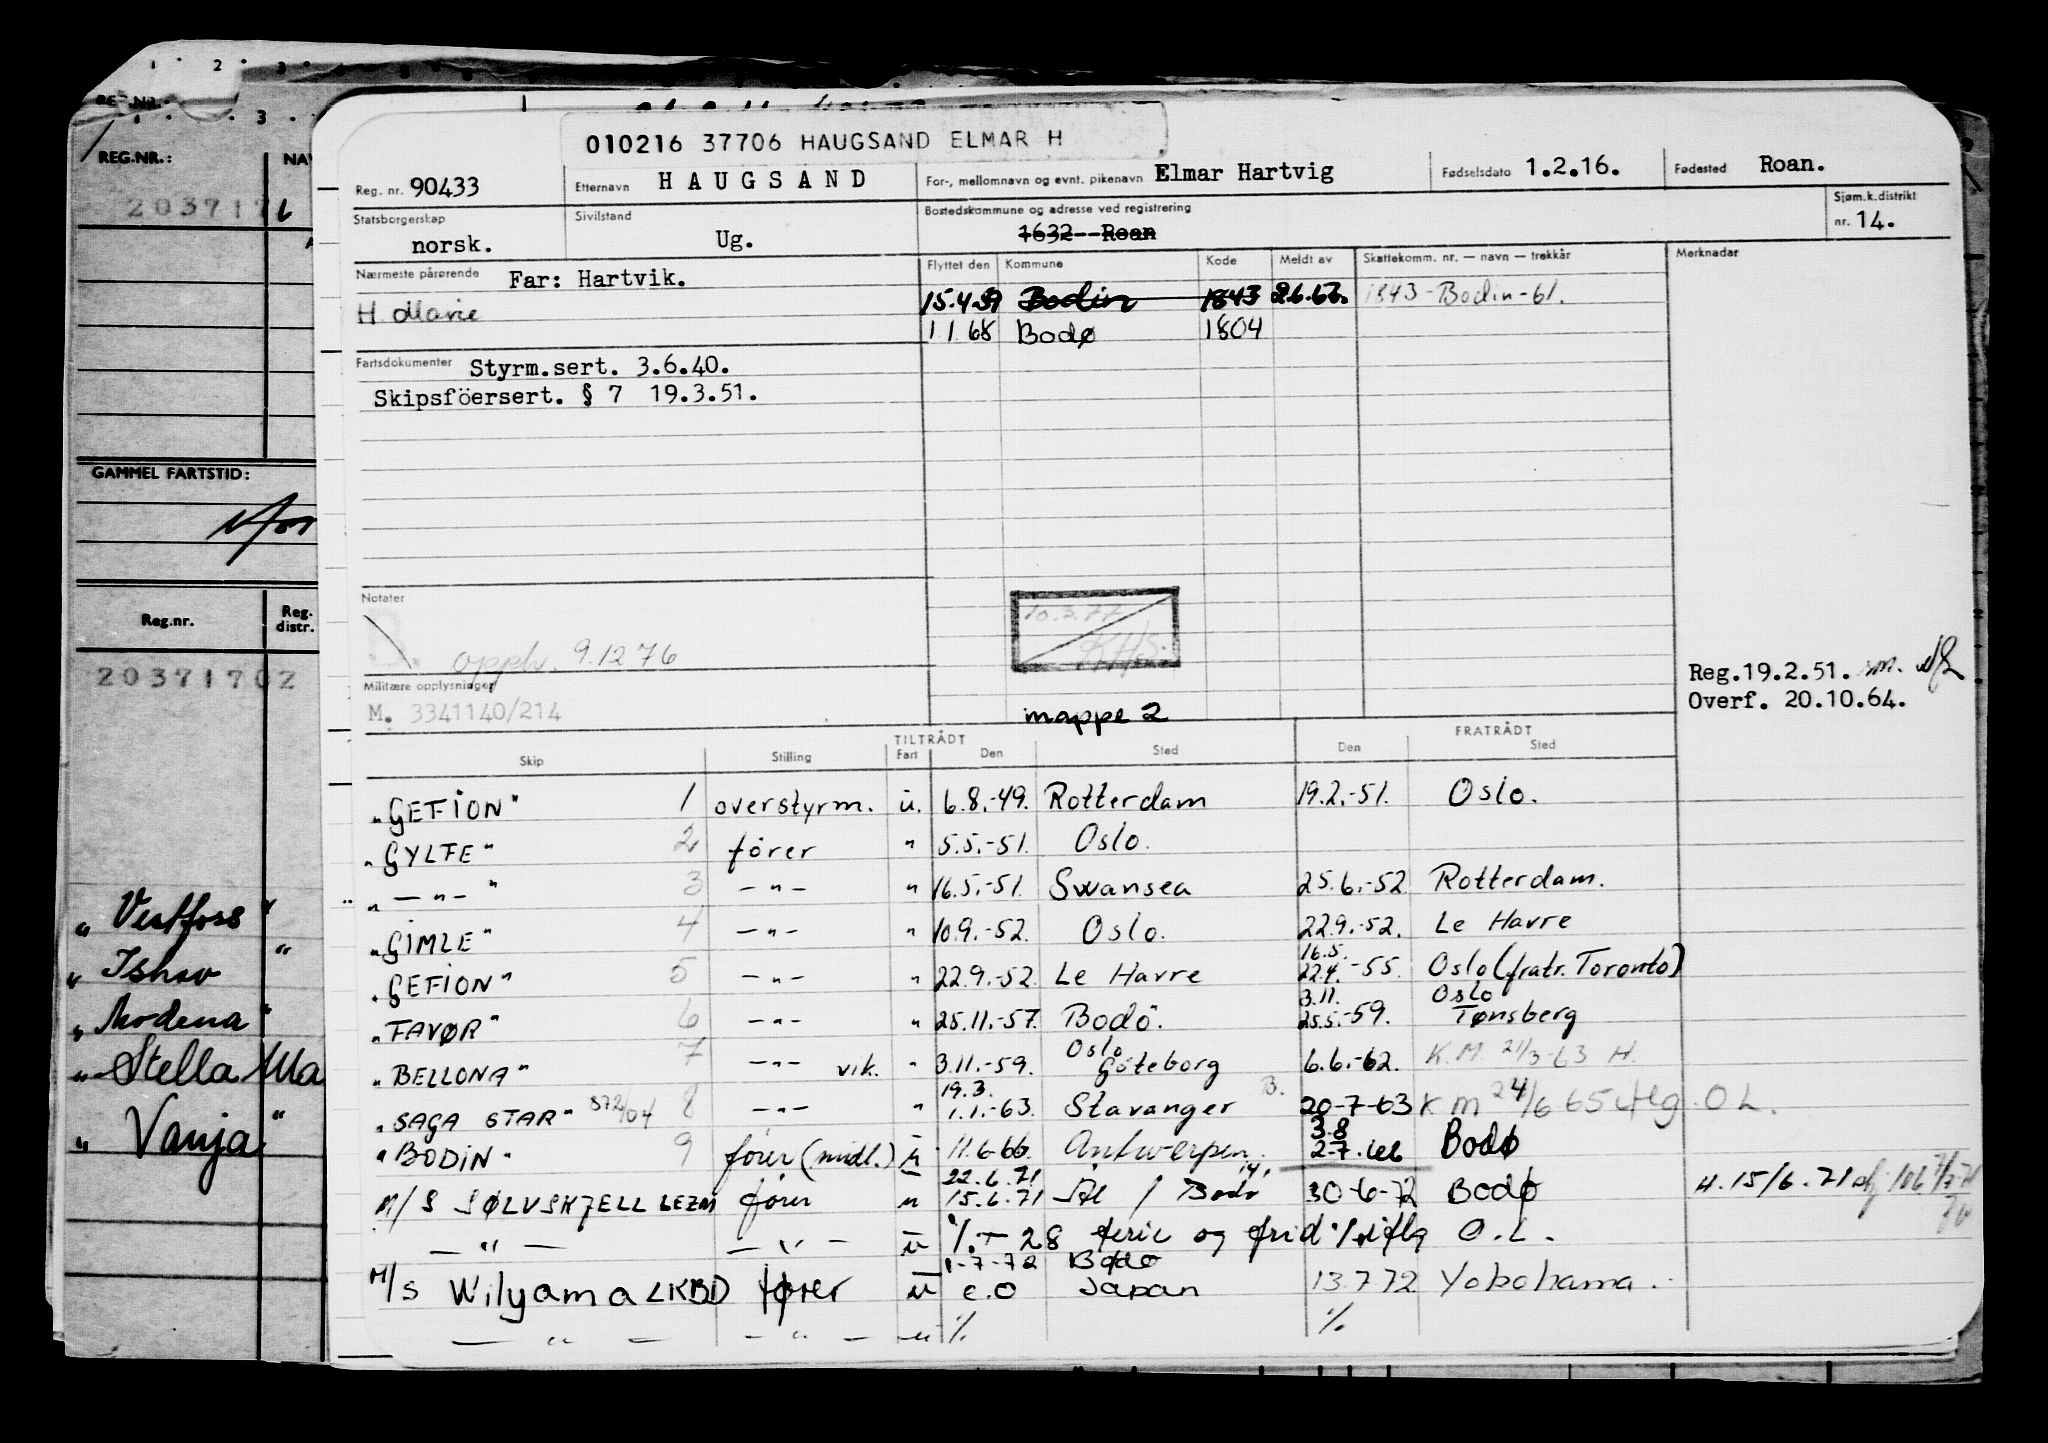 1 2 3
REG.NR.
3
010216 37706 HAUGSAND ELMAR H
REG.NR.: NAV
2037170
Reg. nr. 90433 Etternavn HAUGSAND For-, mellomnavn og evnt. pikenavn Elmar Hartvig Fødselsdato 1.2.16. Fødested Roan.
Statsborgerskap norsk. Sivilstand Ug. Bostedskommune og adresse ved registrering 1632--Roan Sjøm.k.distrikt nr. 14.
Nærmeste pårørende Far: Hartvik. Flyttet den Kommune Kode Meldt av Skattekomm. nr. — navn — trekkår Merknader
H Marie 15.4.59 Bodin 1843 1843-Bodin-61.
1 1 68 Bodø 1804
Fartsdokumenter Styrm.sert. 3.6.40.
Skipsföersert. § 7 19.3.51.
GAMMEL FARTSTID:
Notater
10.3.77
opph. 9.12 76
Reg.nr. Reg. distr.
20371702
Militære opplysninger
M. 3341140/214
mappe 2
Reg.19.2.51. sm.
Overf. 20.10.64.
Skip Stilling TILTRÅDT Fart Den Sted FRATRÅDT Den Sted
"GEFION" 1 overstyrm. u. 6.8.-49. Rotterdam 19.2.-51. Oslo.
"GYLFE" 2 förer " 5.5.-51. Oslo.
" — " — " 3 — " — " 16.5.-51. Swansea 25.6.-52 Rotterdam.
"GIMLE" 4 — " — " 10.9.-52. Oslo. 22.9.-52. Le Havre
"GEFION" 5 — " — " 22.9.-52. Le Havre 16.5. 22.4.-55. Oslo (fratr. Toronto)
"FAVØR" 6 — " — " 25.11.-57. Bodö. 3.11. 25.5.-59. Oslo Tønsberg
"BELLONA" 7 — " — vik. " 3.11.-59. Oslo Göteborg 6.6.-62. K.M. 21/3-63 H.
"SAGA STAR" 572/04 8 — " — " 19.3. 1.1.-63. Stavanger B. 20-7-63 K M 24/6 65 O L.
"BODIN" 9 förer (midl.) u 11.6-66. Antwerpen. 3.8 2-7.66 Bodø
M/S SØLVSKJELL LEZM förer u 22.6.71 15.6.71 / Bodø 30-6-72 Bodø H. 15/6.71
— " — — " — u %.+ 28 ferie og frid. O.L.
M/S Wilyama LKBD fører u 1-7-72 e.O Bodø Japan 13.7 72 Yokohama.
— " — — " — u % %
"Vestfoss"
"Ishav"
"Modena"
"Stella Ma
"Vanja"